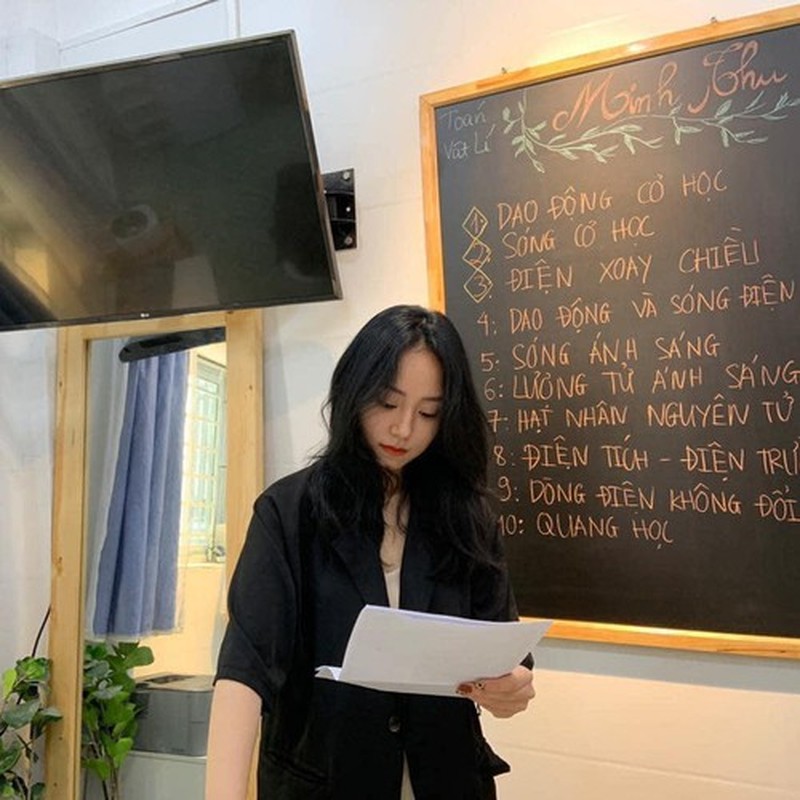 Toán
Vật Lí
Minh Thu
1. DAO ĐỘNG CƠ HỌC
2. SÓNG CƠ HỌC
3. ĐIỆN XOAY CHIỀU
4: DAO ĐỘNG VÀ SÓNG ĐIỆN
5: SÓNG ÁNH SÁNG
6: LƯỢNG TỬ ÁNH SÁNG
7: HẠT NHÂN NGUYÊN TỬ
8: ĐIỆN TÍCH - ĐIỆN TRƯ
9: DÒNG ĐIỆN KHÔNG ĐỔI
10: QUANG HỌC
LG